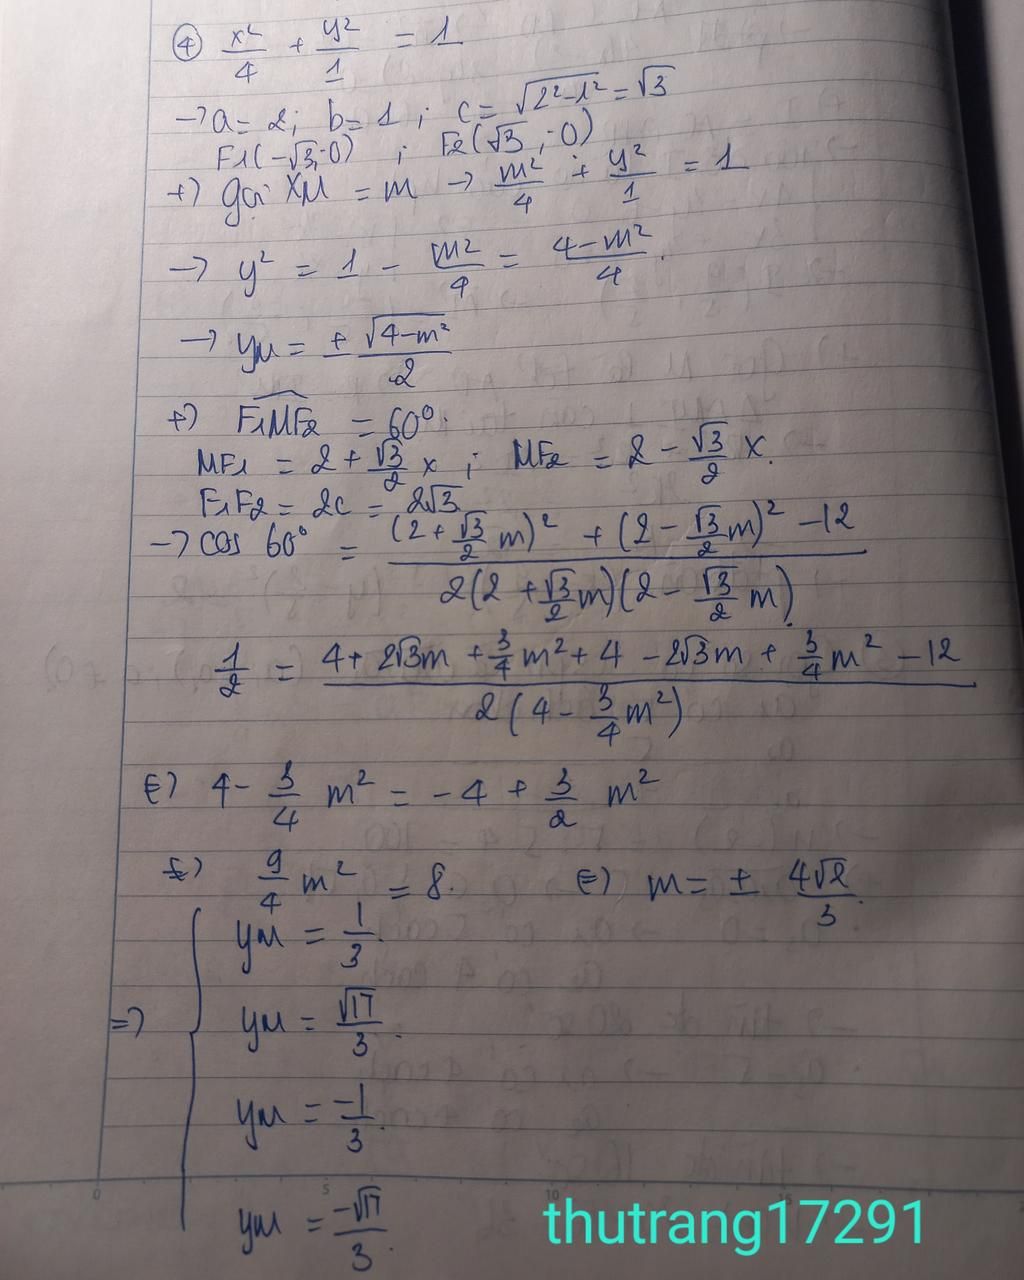 ④ x²/4 + y²/1 = 1
→ a = 2; b = 1; c = √(2²-1²) = √3
F1(-√3;0) ; F2(√3;0)
+) gọi xM = m → m²/4 + y²/1 = 1
→ y² = 1 - m²/4 = (4-m²)/4.
→ yM = ± √(4-m²)/2
+) F1MF2 = 60°.
MF1 = 2 + √3/2 x ; MF2 = 2 - √3/2 x.
F1F2 = 2c = 2√3
→ cos 60° = ((2 + √3/2 m)² + (2 - √3/2 m)² - 12)/(2(2 + √3/2 m)(2 - √3/2 m))
1/2 = (4 + 2√3m + 3/4 m² + 4 - 2√3m + 3/4 m² - 12)/(2(4 - 3/4 m²))
⇔) 4 - 3/4 m² = -4 + 3/2 m²
⇔) 9/4 m² = 8. ⇔) m = ± 4√2/3.
yM = 1/3.
=> yM = √17/3.
yM = -1/3.
yM = -√17/3.
0 5 10 15
thutrang17291